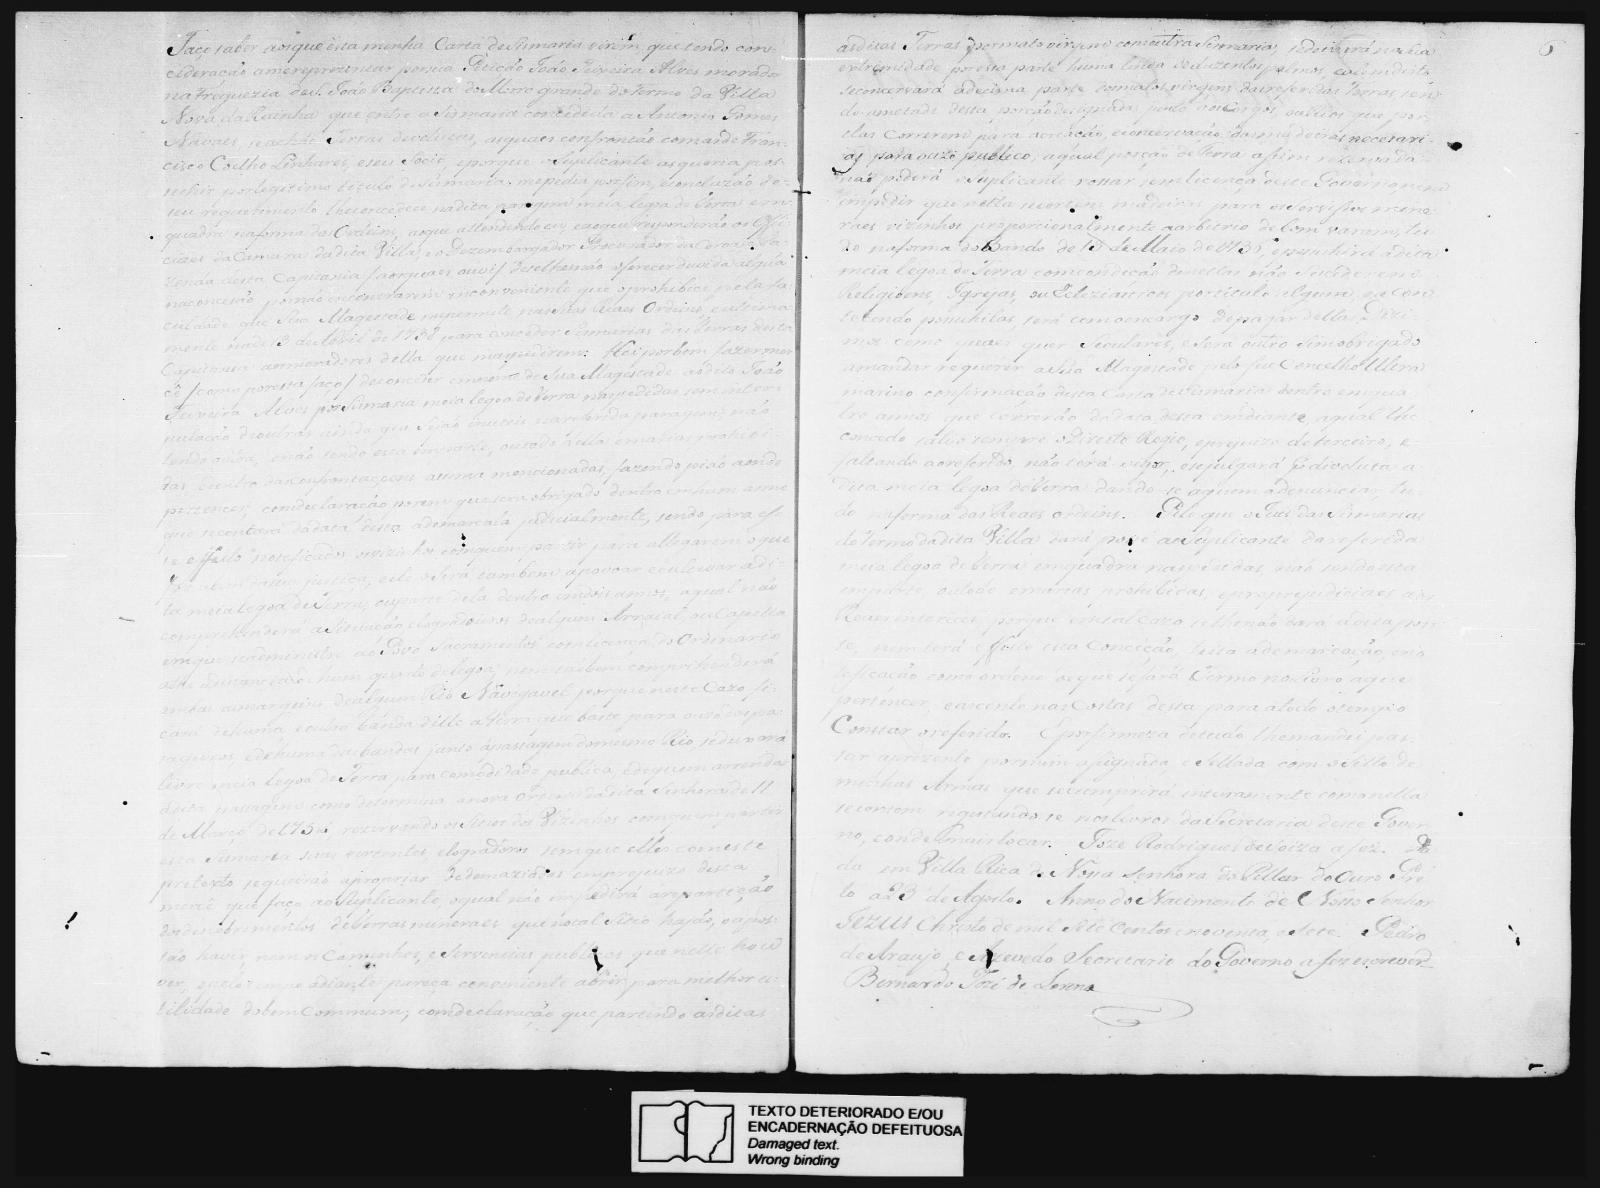 Faço saber aos que esta minha Carta de Sismaria virem, que tendo con-
cideração a me reprezentar por sua Petição João Teixeira Alves morador
na Freguezia de S. João Baptista do Morro grande do termo da Villa
Nova da Rainha que entre a Sismaria concedida a Antonio Gomes
Navaes, se achão Terras devolutas, as quaes confrontão com as de Fran-
cisco Coelho Linhares, e seu Socio, e porque o Suplicante as queria pos-
suhir por legitimo titulo de Sismaria, me pedia por fim, e concluzão de
seu requerimento lhe concedece na dita paragem meia legoa de terra em
quadra na forma das Ordens, ao que attendendo eu, e ao que responderão os Offi-
ciaes da Camara da dita Villa, e o Dezembargador Procurador da Coroa, e Fa-
zenda desta Capitania (a os quaes ouvi) de se lhes não oferecer duvida alguã
na concesão por não encontrarem inconveniente que o prohibice, pela fa-
culdade que Sua Magestade me permite nas suas Reaes Ordens, e ultima-
mente na de 13 de Abril de 1738 para conceder Sismarias das terras desta
Capitania aos moradores della que mas pedirem: Hei por bem fazer mer-
cê (como por esta faço) de conceder em nome de Sua Magestade ao dito João
Teixeira Alves por Sismaria meia legoa de terra nas pedidas sem inter-
pulação de outras ainda que sejão inuteis na referida paragem, não
tendo outra, e não sendo esta em parte, ou todo della em arias prohibi-
das dentro das confrontaçoens asima mencionadas, fazendo pião aonde
pertencer, com declaração porem que sera obrigado dentro em hum anno
que se contará da data desta a demarcala judicialmente, sendo para esse
efeito noteficados os vizinhos com quem partir para allegarem o que
for a bem da sua justiça, e ele o Será tambem a povoar e cultivar a di-
ta meia legoa de Terra, ou parte dela dentro em dois annos, a qual não
comprehenderá a Situação e logradouros de algum Arraial, ou Capella
em que se administre ao Povo Sacramentos com licença do Ordinario
athe a distancia de hum quarto de legoa; nem tambem comprehenderá
ambas as margens de algum Rio Navigavel porque neste Cazo fi-
cará de huma e outra banda delle a terra que baste para o uzo dos pa-
sageiros, e de huma das bandas junto á pasagem do mesmo Rio se deixará
livre meia legoa de Terra para comodidade publica, e de quem arrendar
a dita pasagem como determina a nova Ordem da dita Senhora de 11
de Março de 1754 rezervando os Sitios dos Vizinhos com quem partir
esta Sismaria suas vertentes, e logradouros sem que elles com este
pretexto se queirão apropriar de demaziadas em prejuizo desta
mercê que faço ao Suplicante, o qual não impedirá a repartição
dos descobrimentos de terras mineraes que no tal Sitio hajão, ou pos-
são haver, nem os Caminhos, e Serventias publicas que nelle hou-
ver, e pelo tempo adiante pareça conveniente abrir para melhor u-
tilidade do bem Commum; com declaração que partindo as ditas
6
as ditas Terras por mato virgem com outra Sismaria, se deixará na sua
extremidade por esta parte huma linha de duzentos palmos, e a dem dista
se concervará a decima parte dos matos virgens das referidas terras, sen-
do ametade desta porção designada junto aos Corgos, ou Rios que por
elas Correrem para a creação, e concervação das madeiras necesari-
as para o uzo publico, a qual porção de terra asim rezervada
não poderá o Suplicante rossar sem licença deste Governo, nem
impedir que nella se cortem madeiras para os Servissos mine-
raes vizinhos proporcionalmente a arbitrio de bom varam, tu-
do na forma do Bando de 13 de Maio de 1736, e possuhirá a dita
meia legoa de Terra com condição de nellas não Sucederem
Religioens, Igrejas, ou Ecleziasticos por titulo algum, e a Con-
tecendo possuhilas, será com o encargo de pagar dellas Dizi-
mos como quaes quer Seculares, e Será outro Sim obrigado
a mandar requerer a Sua Magestade pelo seu Concelho Ultra-
marino confirmação desta Carta de Sismaria dentro em qua-
tro annos que correrão da data desta em diante, a qual lhe
concedo salvo sempre o Direito Regio, e prejuizo de terceiro, e
faltando ao referido, não terá vigor, e se julgará por devoluta a
dita meia legoa de terra dando-se a quem a denunciar, tu-
do na forma das Reaes ordens. Pelo que o Juis das Sismarias
do termo da dita Villa dará posse ao Suplicante da referida
meia legoa de terra em quadra nas pedidas, não sendo esta
em parte, ou todo em arias prohibidas, e por prejudiciaes aos
Reaes interces, porque em tal Cazo se lhe não dará a dita pos-
se, nem terá efeito esta Conceição, feita a demarcação, e no-
teficação como ordeno de que se fará termo no Livro a que
pertencer, e asento nas Costas desta para a todo o tempo
Constar o referido. E por firmeza de tudo lhe mandei pas-
sar a prezente por mim asignada, e Sellada com o Sello de
minhas Armas que se cumprirá inteiramente como nella
se contem registando-se nos Livros da Secretaria deste Gover-
no, e onde mais tocar. Joze Rodrigues de Soiza a fez. Da-
da em Villa Rica de Nossa Senhora do Pillar do Ouro Pre-
to a 23 de Agosto. Anno do Nacimento de Nosso Senhor
JEZUS Christo de mil Sete Centos e noventa, e Sete. Pedro
de Araujo e Azevedo Secretario do Governo a fez escrever
Bernardo Joze de Lorena
TEXTO DETERIORADO E/OU
ENCADERNAÇÃO DEFEITUOSA
Damaged text.
Wrong binding